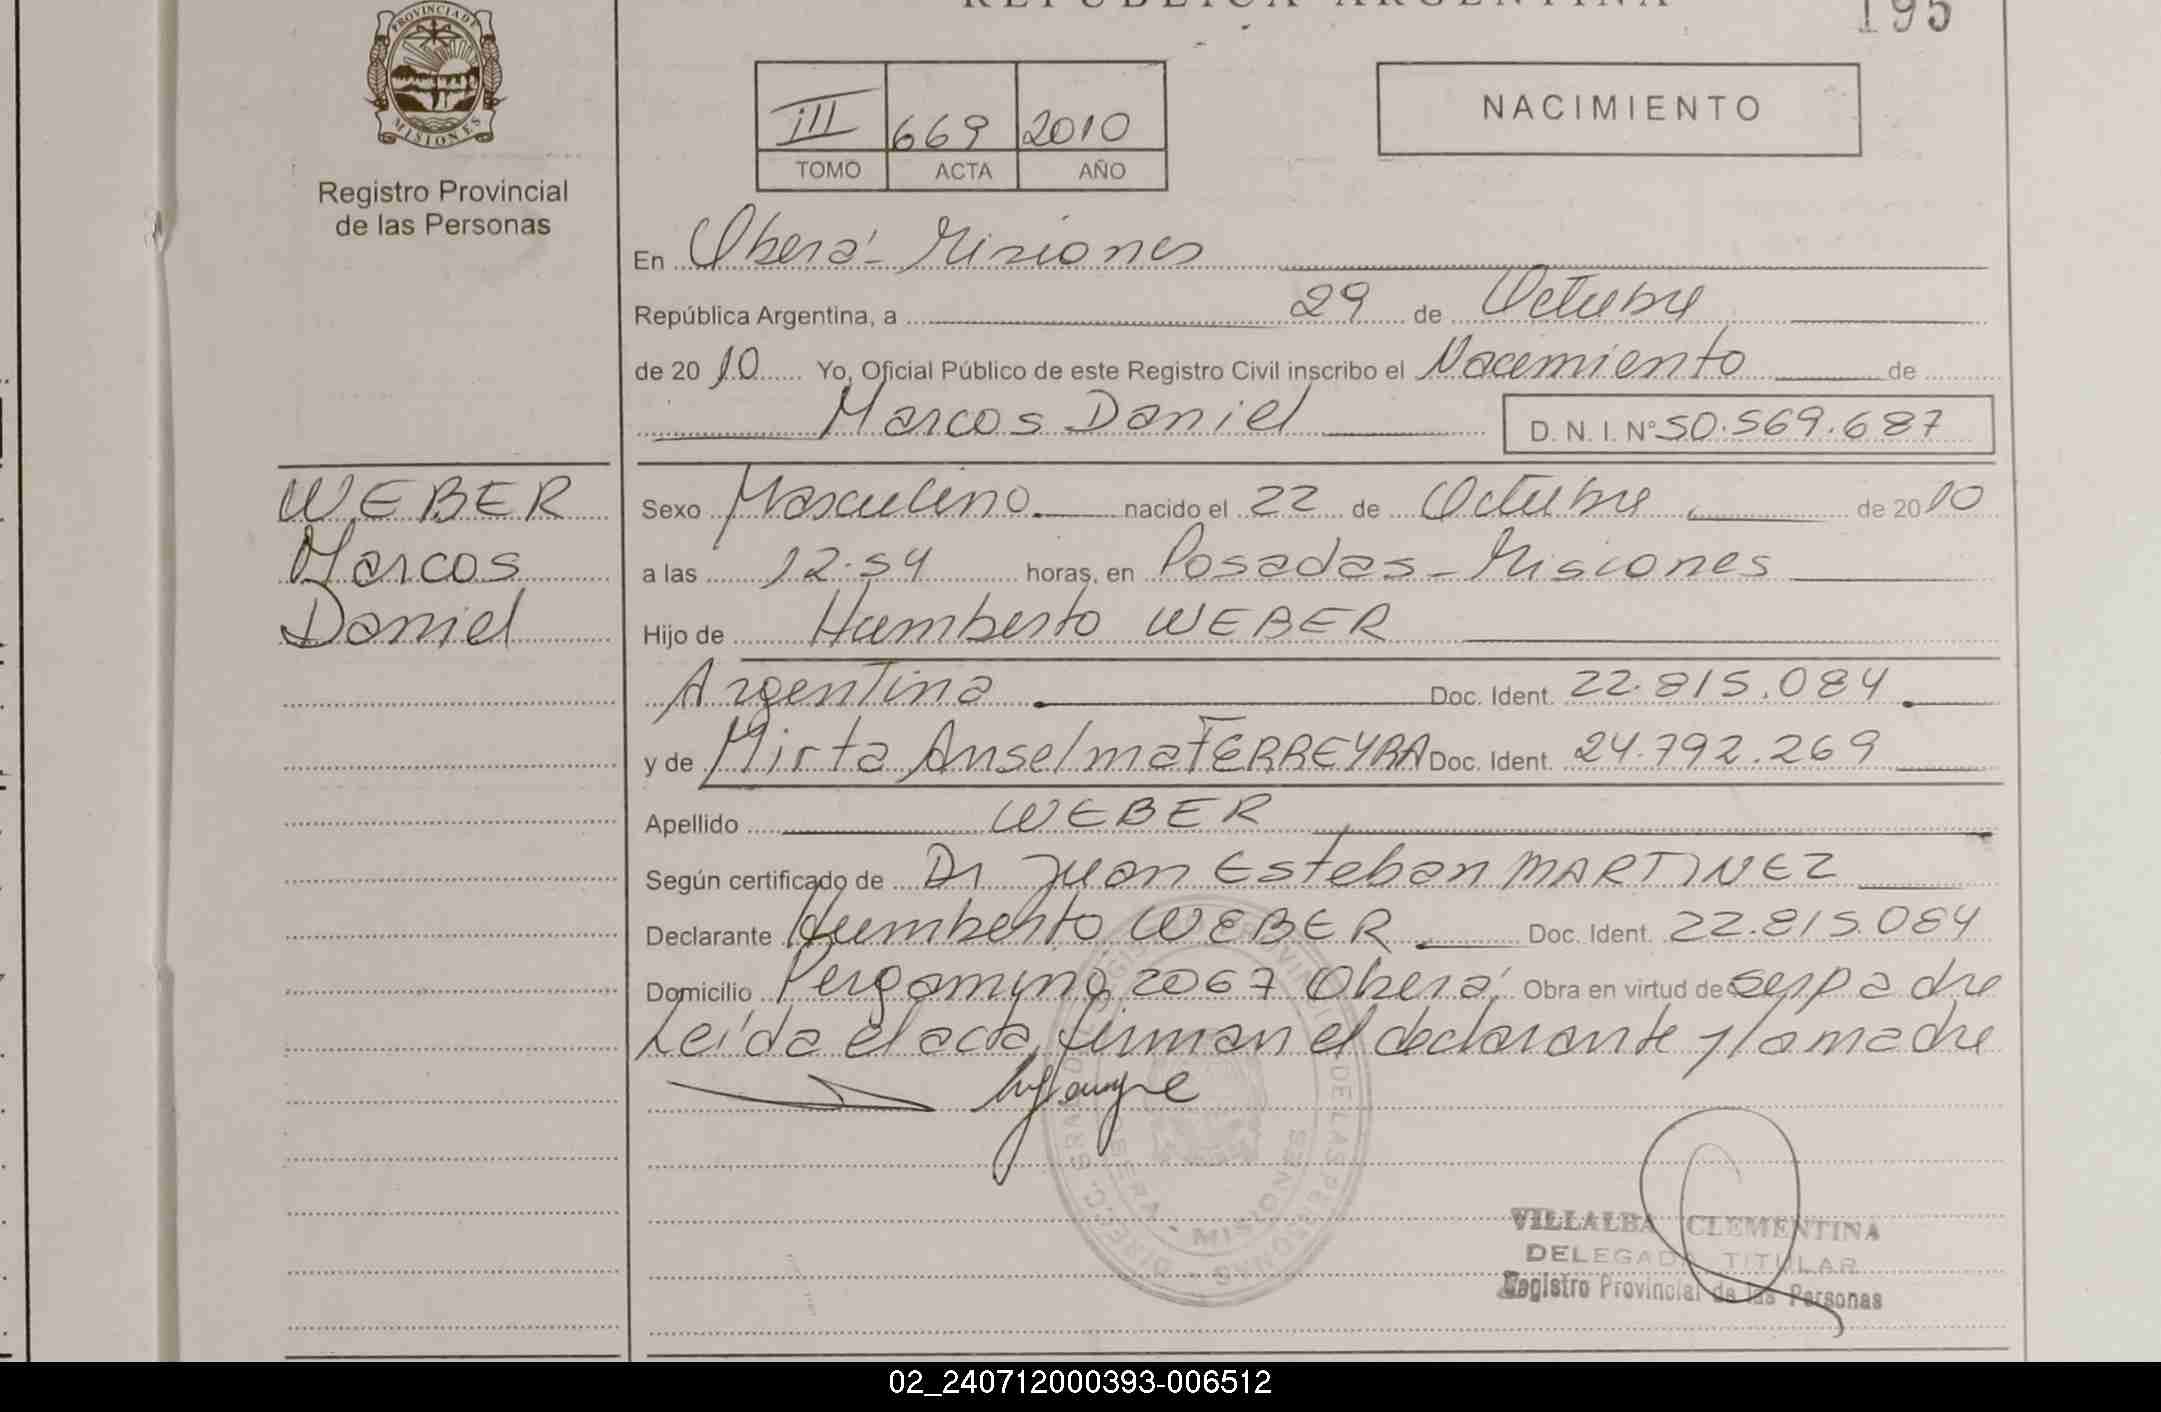 REPUBLICA ARGENTINA
195
PROVINCIA DE
MISIONES
Registro Provincial
de las Personas
III 669 2010
TOMO ACTA AÑO
NACIMIENTO
En Oberá - Misiones
República Argentina, a 29 de Octubre
de 2010 Yo, Oficial Público de este Registro Civil inscribo el Nacimiento de
Marcos Daniel D. N. I. N° 50.569.687
WEBER
Marcos
Daniel
Sexo Masculino nacido el 22 de Octubre de 2010
a las 12.54 horas, en Posadas - Misiones
Hijo de Humberto WEBER
Argentina Doc. Ident. 22.815.084
y de Mirta Anselma FERREYRA Doc. Ident. 24.792.269
Apellido WEBER
Según certificado de Dr Juan Esteban MARTINEZ
Declarante Humberto WEBER Doc. Ident. 22.815.084
Domicilio Pergamino 2067 Oberá Obra en virtud de ser padre
Leída el acta, firman el declarante y la madre
OBERA - MISIONES
VILLALBA CLEMENTINA
DELEGADA TITULAR
Registro Provincial de las Personas
02_240712000393-006512